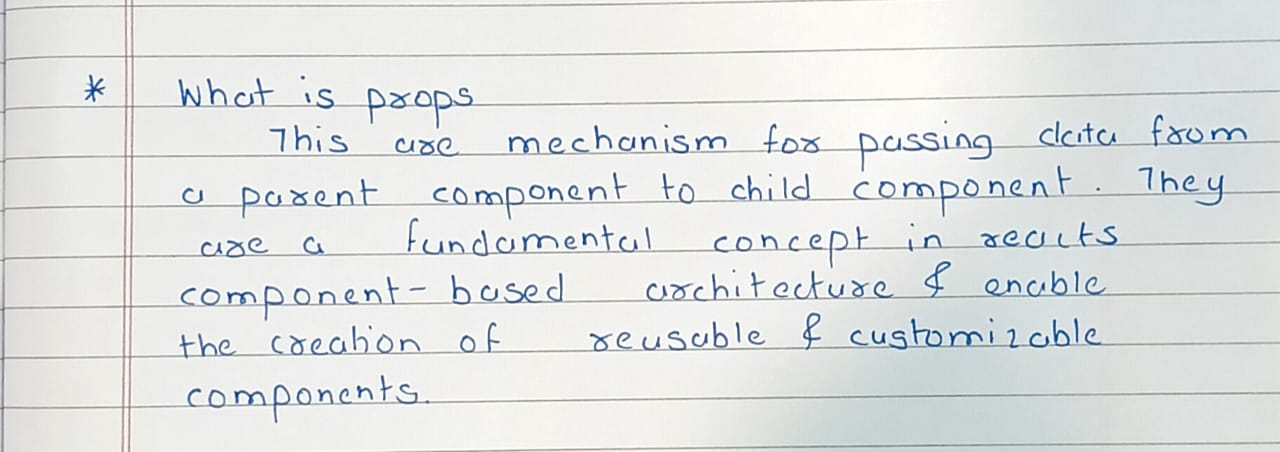 * What is props
This are mechanism for passing data from
a parent component to child component. They
are a fundamental concept in reacts
component-based architecture & enable
the creation of reusable & customizable
components.